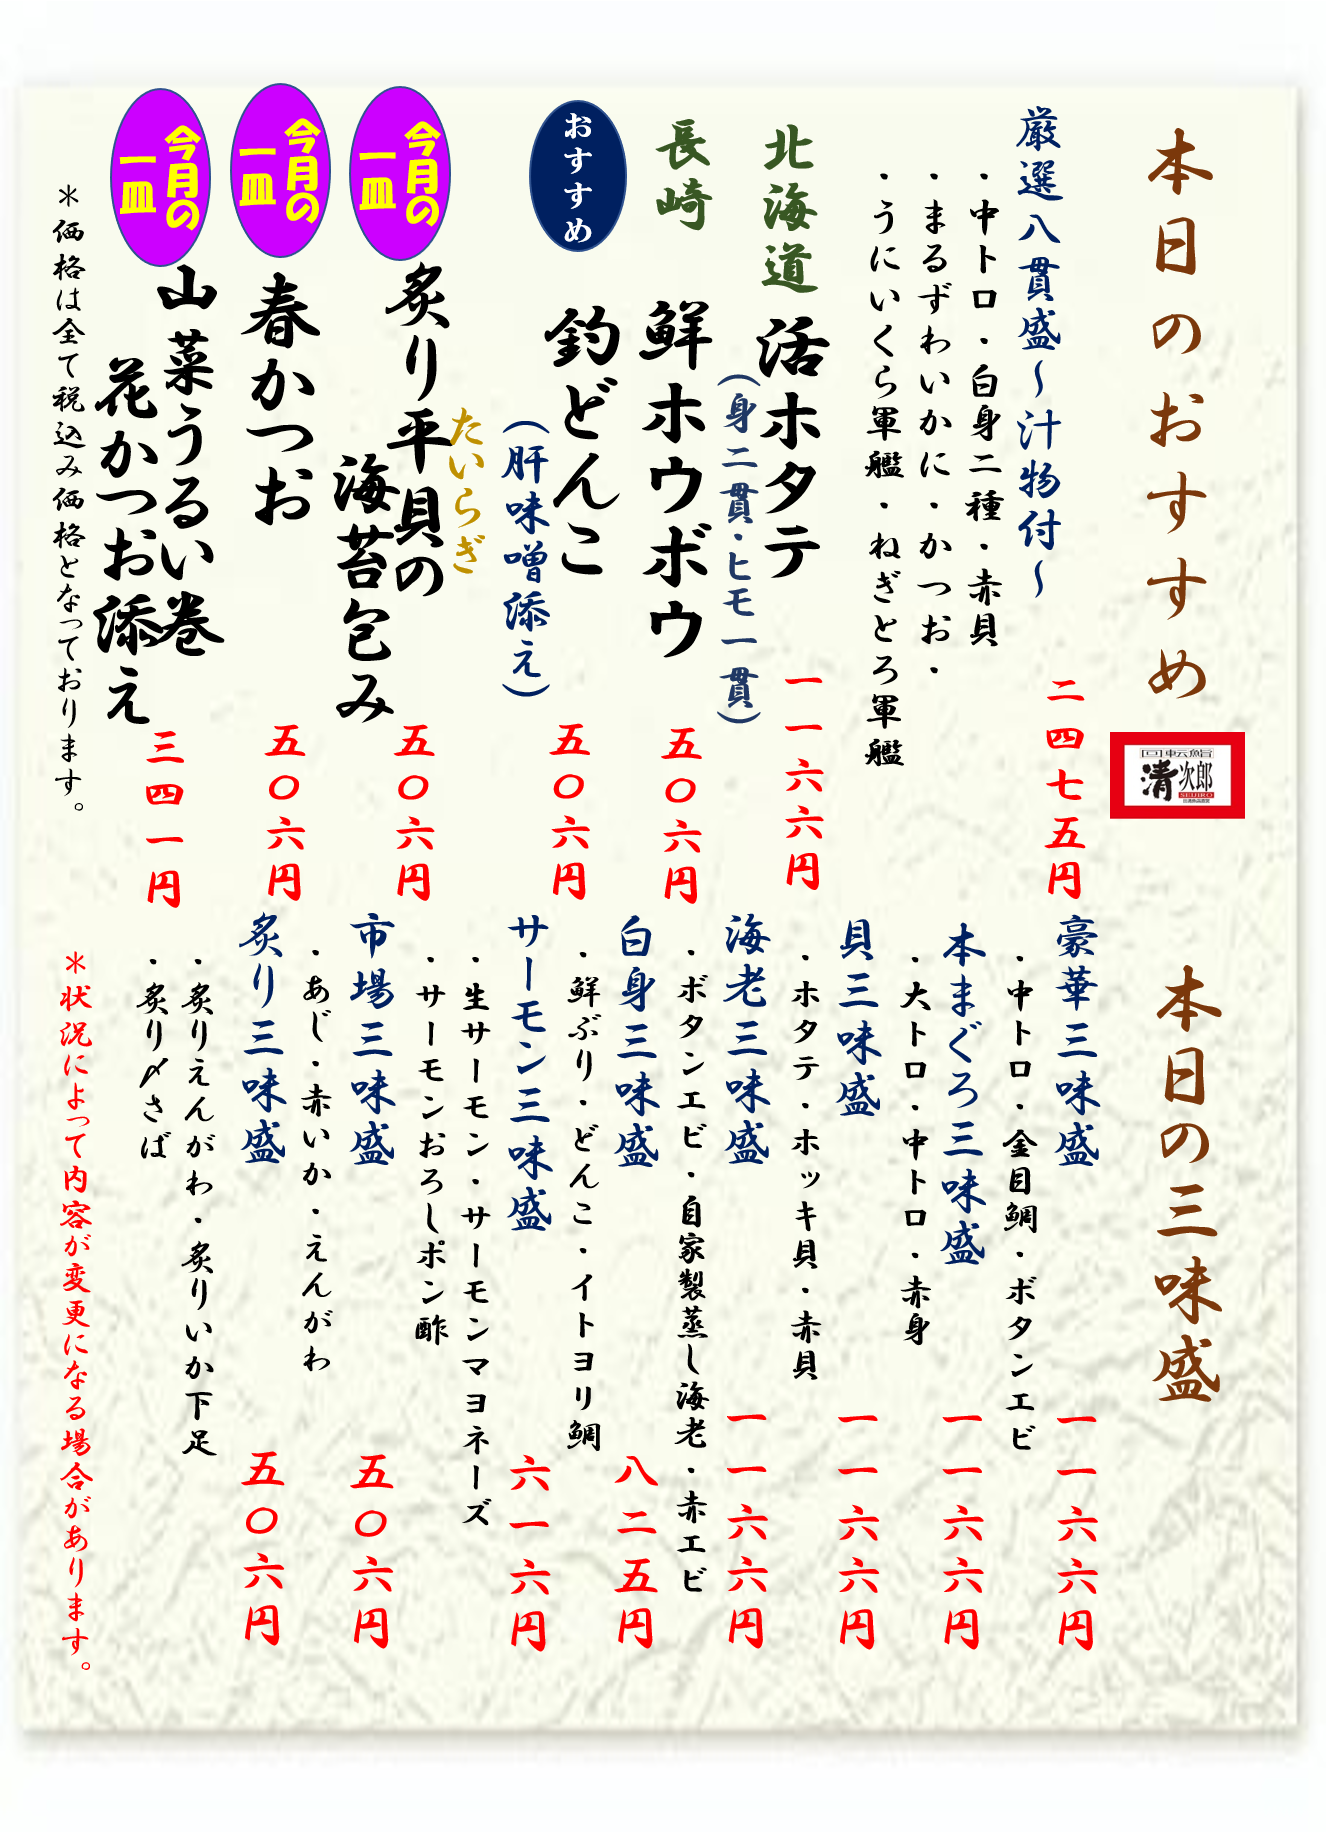 本日のおすすめ
回転鮨
清次郎
SEIJIRO
厳選八貫盛～汁物付～
・中トロ・白身二種・赤貝
・まるずわいかに・かつお・
・うにいくら軍艦・ねぎとろ軍艦
二四七五円
北海道 活ホタテ
（身二貫・ヒモ一貫）
一一六六円
長崎 鮮ホウボウ
五〇六円
おすすめ
釣どんこ
（肝味噌添え）
五〇六円
今月の
一皿
炙り平貝の
たいらぎ
海苔包み
五〇六円
今月の
一皿
春かつお
五〇六円
今月の
一皿
山菜うるい巻
花かつお添え
三四一円
＊価格は全て税込み価格となっております。
本日の三味盛
豪華三味盛
・中トロ・金目鯛・ボタンエビ
一一六六円
本まぐろ三味盛
・大トロ・中トロ・赤身
一一六六円
貝三味盛
・ホタテ・ホッキ貝・赤貝
一一六六円
海老三味盛
・ボタンエビ・自家製蒸し海老・赤エビ
一一六六円
白身三味盛
・鮮ぶり・どんこ・イトヨリ鯛
八二五円
サーモン三味盛
・生サーモン・サーモンマヨネーズ
・サーモンおろしポン酢
六一六円
市場三味盛
・あじ・赤いか・えんがわ
五〇六円
炙り三味盛
・炙りえんがわ・炙りいか下足
・炙り〆さば
五〇六円
＊状況によって内容が変更になる場合があります。